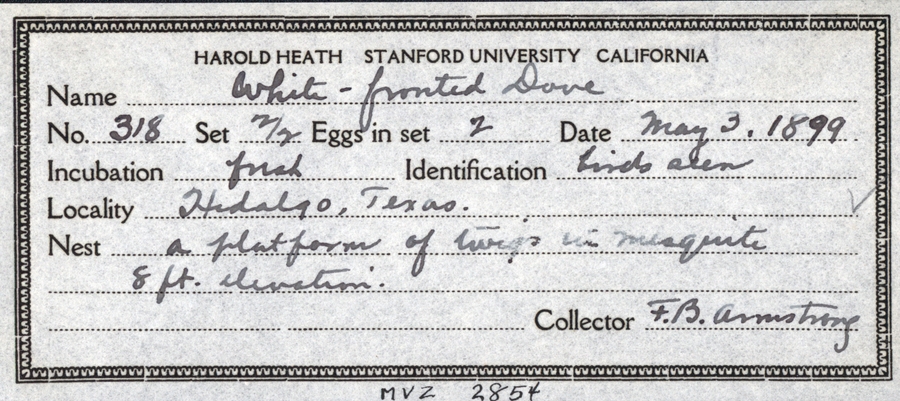 HAROLD HEATH STANFORD UNIVERSITY CALIFORNIA
Name White-fronted Dove
No. 318 Set 2/2 Eggs in set 2 Date May 3, 1899
Incubation fresh Identification birds seen
Locality Hidalgo, Texas.
Nest a platform of twigs in mesquite
8 ft. elevation.
Collector F.B. Armstrong
MVZ 2854